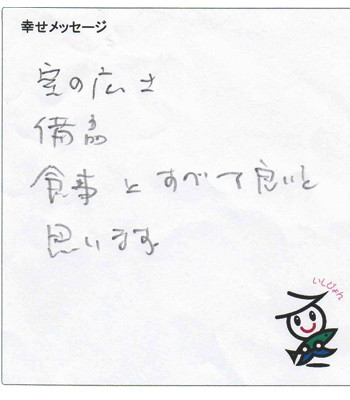 幸せメッセージ
室の広さ
備品
食事とすべて良いと
思います
いしじょん